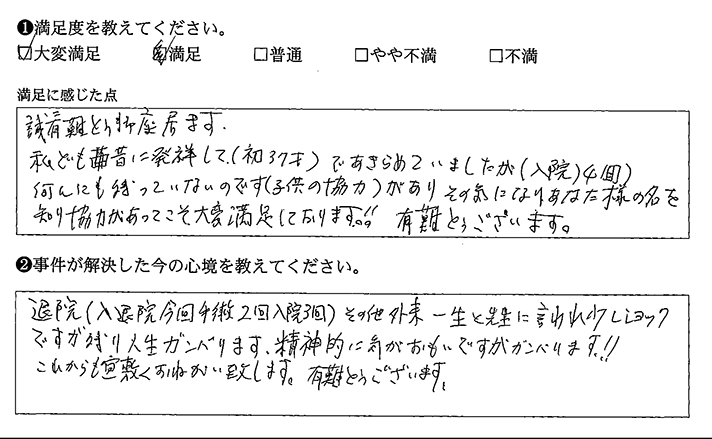 ❶満足度を教えてください。
☑大変満足 □満足 □普通 □やや不満 □不満
満足に感じた点
誠有難とう御座居ます.
私ども昔に発祥して(初37才)であきらめていましたが(入院)4回)
何んにも残っていないのです(子供の協力)がありその気になりあなた様の名を
知り協力があってこそ大変満足して居ります!! 有難とうございます。
❷事件が解決した今の心境を教えてください。
退院(入退院今回手術2回入院3回)その他外来一生と先生に言われ少しショック
ですが残り人生ガンバります、精神的に気がおもいですがガンバります!!
これからも宜敷くおねがい致します。有難とうございます。